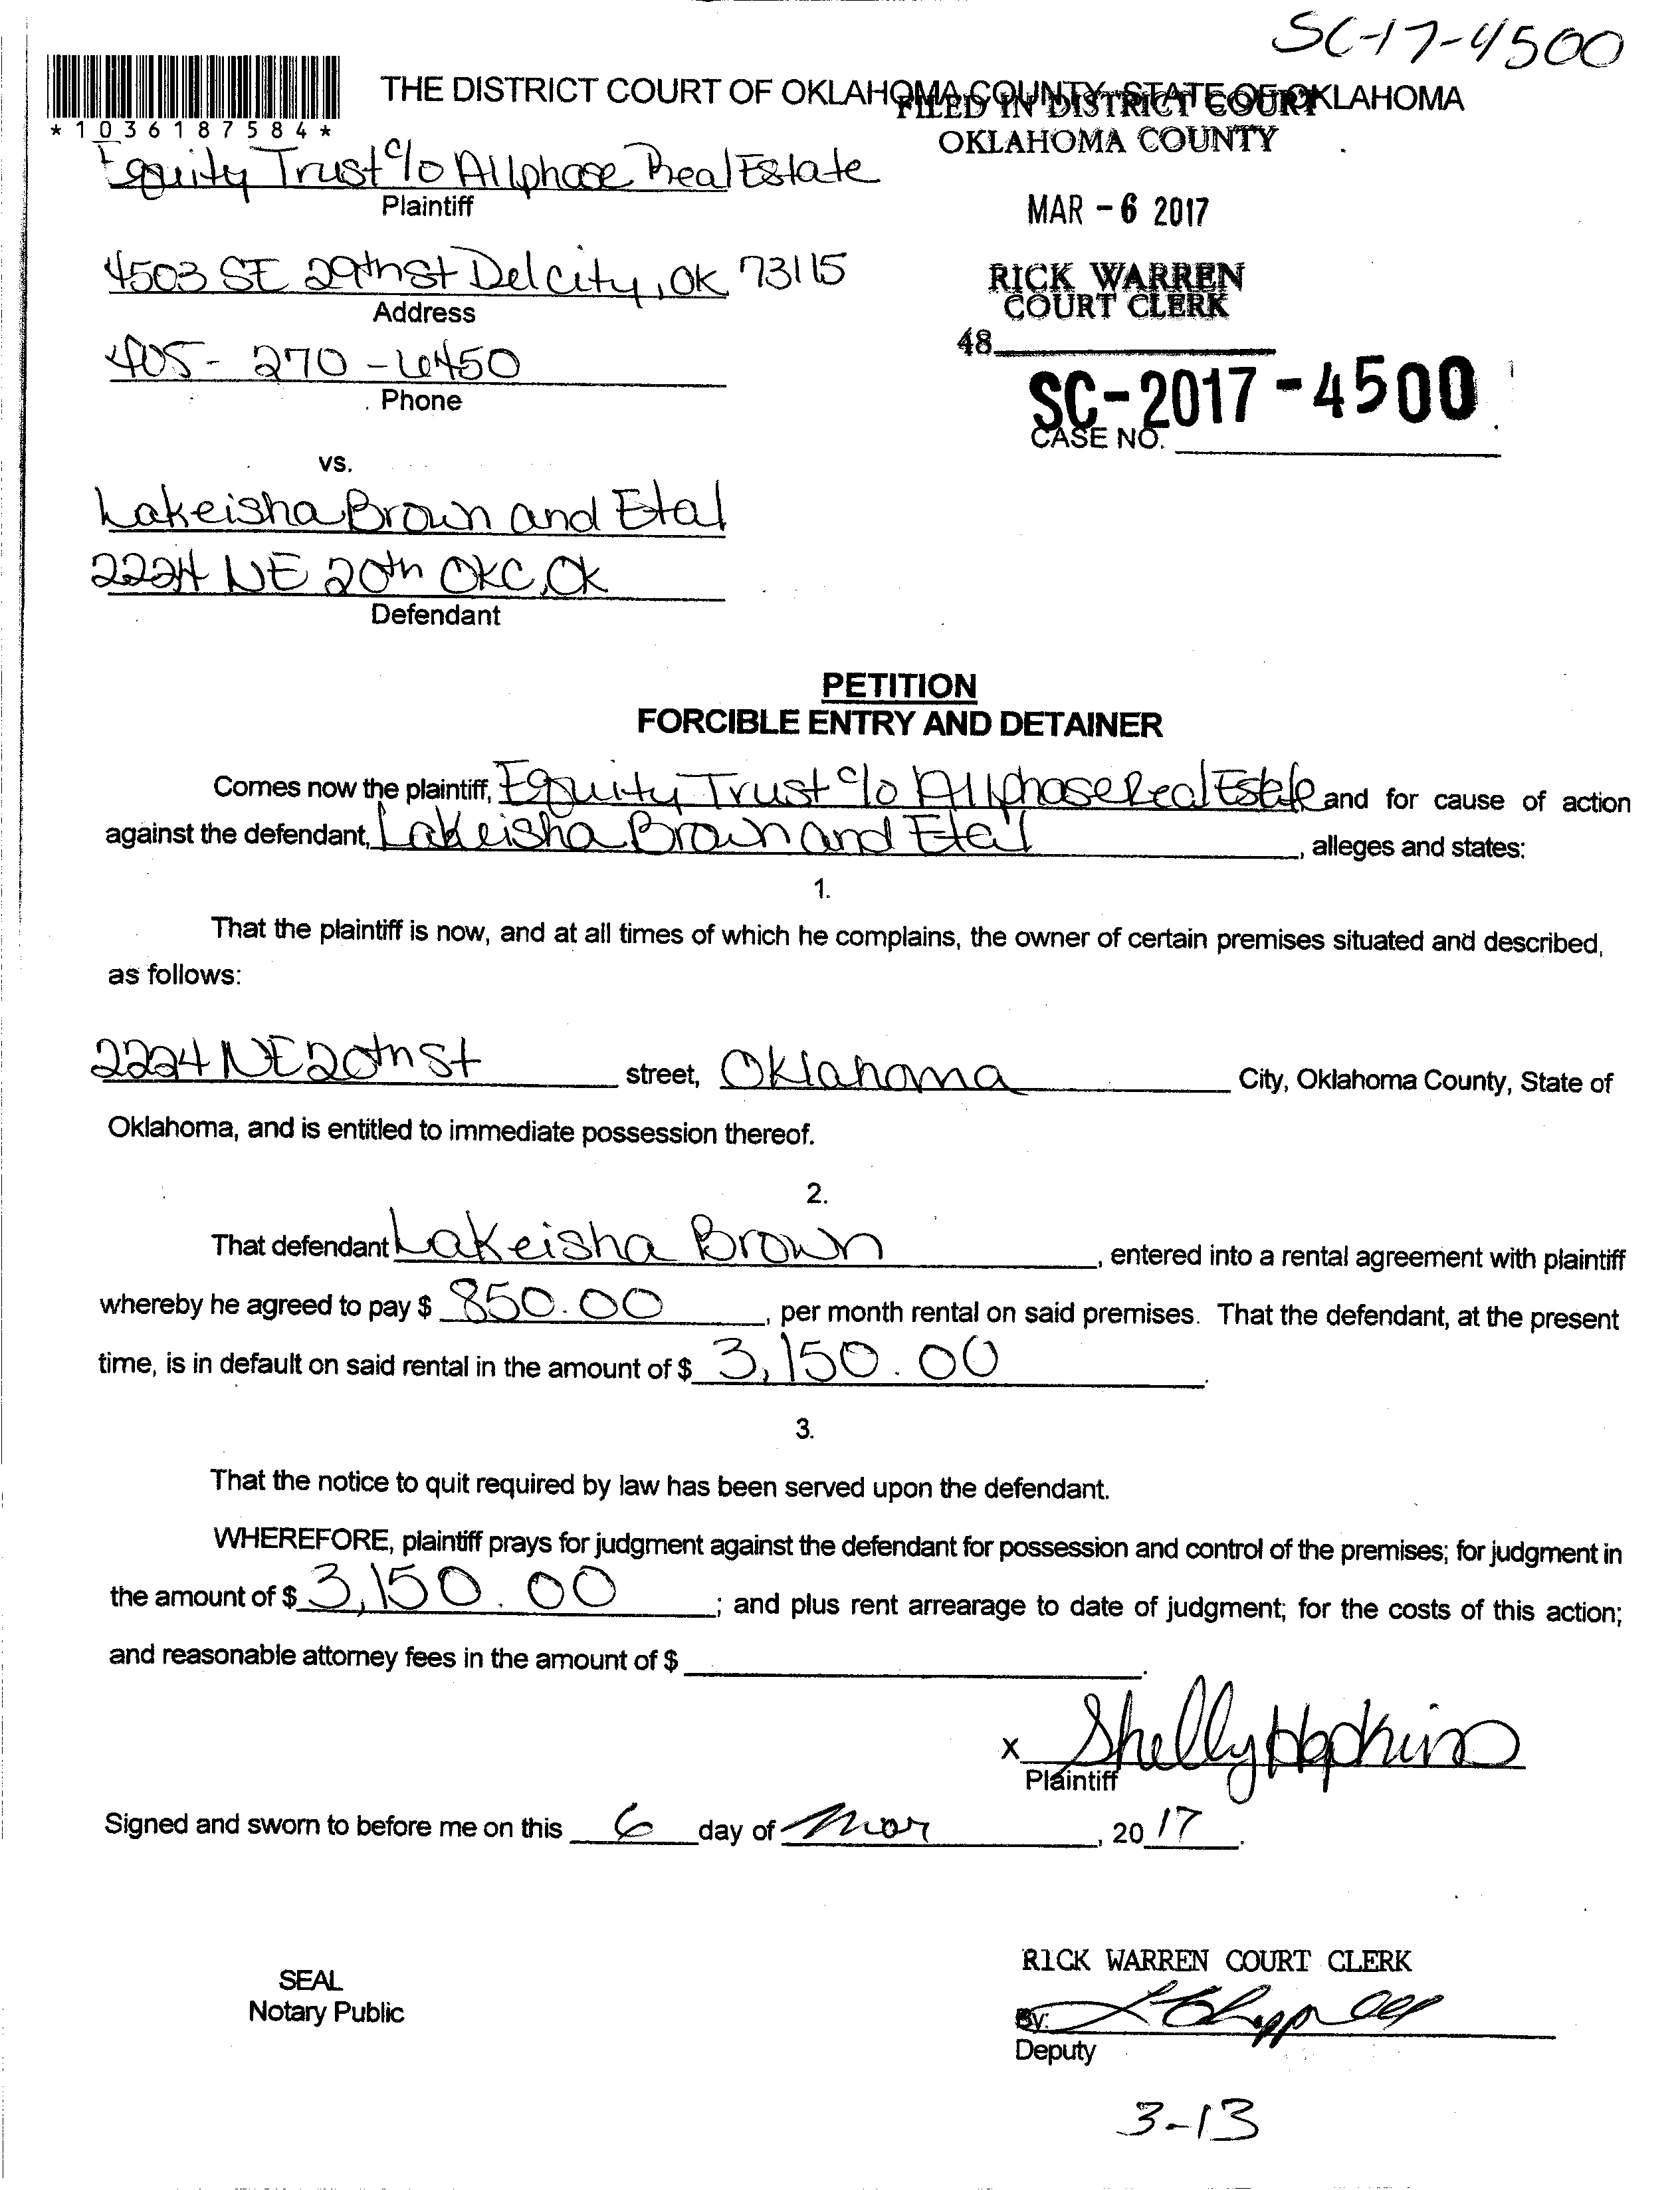 SC-17-4500
THE DISTRICT COURT OF OKLAHOMA COUNTY, STATE OF OKLAHOMA
FILED IN DISTRICT COURT
OKLAHOMA COUNTY
*1036187584*
Equity Trust c/o Allphase Real Estate
Plaintiff
MAR - 6 2017
4503 SE 29th St Del City, OK 73115
Address
RICK WARREN
COURT CLERK
48
405-270-6450
Phone
SC-2017-4500
CASE NO.
vs.
Lakeisha Brown and Etal
2224 NE 20th OKC, OK
Defendant
PETITION
FORCIBLE ENTRY AND DETAINER
Comes now the plaintiff, Equity Trust c/o Allphase Real Estate and for cause of action
against the defendant, Lakeisha Brown and Etal, alleges and states:
1.
That the plaintiff is now, and at all times of which he complains, the owner of certain premises situated and described,
as follows:
2224 NE 20th St street, Oklahoma City, Oklahoma County, State of
Oklahoma, and is entitled to immediate possession thereof.
2.
That defendant Lakeisha Brown, entered into a rental agreement with plaintiff
whereby he agreed to pay $ 850.00, per month rental on said premises. That the defendant, at the present
time, is in default on said rental in the amount of $ 3,150.00.
3.
That the notice to quit required by law has been served upon the defendant.
WHEREFORE, plaintiff prays for judgment against the defendant for possession and control of the premises; for judgment in
the amount of $ 3,150.00; and plus rent arrearage to date of judgment; for the costs of this action;
and reasonable attorney fees in the amount of $
x Shelly Hopkins
Plaintiff
Signed and sworn to before me on this 6 day of Mar, 2017.
RICK WARREN COURT CLERK
SEAL
Notary Public
By:
Deputy
3-13